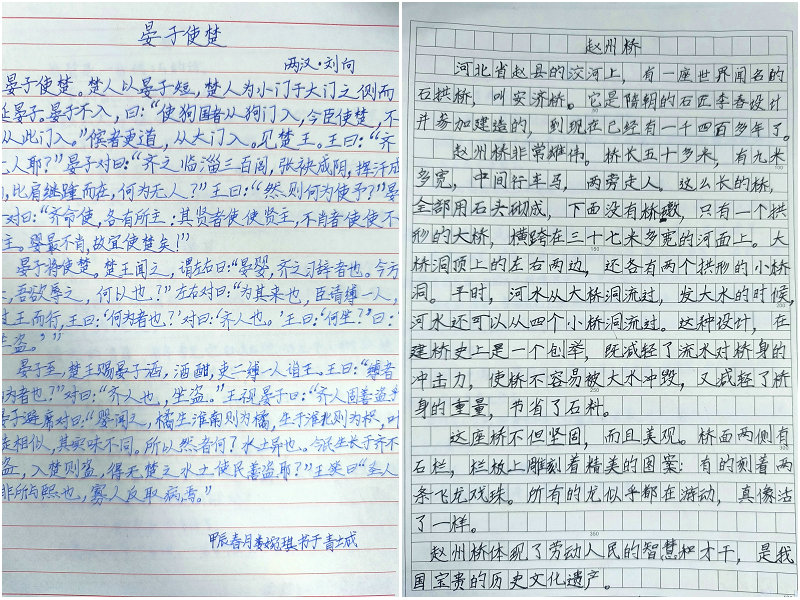 晏子使楚
两汉·刘向
晏子使楚。楚人以晏子短，楚人为小门于大门之侧而
延晏子。晏子不入，曰：“使狗国者从狗门入，今臣使楚，不
从此门入。”傧者更道，从大门入。见楚王。王曰：“齐
人耶？”晏子对曰：“齐之临淄三百闾，张袂成阴，挥汗成
，比肩继踵而在，何为无人？”王曰：“然则何为使予？”晏
对曰：“齐命使，各有所主：其贤者使使贤主，不肖者使使不
主。婴最不肖，故宜使楚矣！”
晏子将使楚。楚王闻之，谓左右曰：“晏婴，齐之习辞者也。今方
，吾欲辱之，何以也？”左右对曰：“为其来也，臣请缚一人，
过王而行，王曰：‘何为者也？’对曰：‘齐人也。’王曰：‘何坐？’曰：‘
坐盗。’”
晏子至，楚王赐晏子酒，酒酣，吏二缚一人诣王。王曰：“缚者
为者也？”对曰：“齐人也，坐盗。”王视晏子曰：“齐人固善盗乎
晏子避席对曰：“婴闻之，橘生淮南则为橘，生于淮北则为枳，叶
徒相似，其实味不同。所以然者何？水土异也。今民生长于齐不
盗，入楚则盗，得无楚之水土使民善盗耶？”王笑曰“圣人
非所与熙也，寡人反取病焉。”
甲辰春月 琪书于青城
赵州桥
河北省赵县的洨河上，有一座世界闻名的
石拱桥，叫安济桥。它是隋朝的石匠李春设计
并参加建造的，到现在已经有一千四百多年了。
赵州桥非常雄伟。桥长五十多米，有九米
多宽，中间行车马，两旁走人。这么长的桥，
全部用石头砌成，下面没有桥墩，只有一个拱
形的大桥，横跨在三十七米多宽的河面上。大
桥洞顶上的左右两边，还各有两个拱形的小桥
洞。平时，河水从大桥洞流过，发大水的时候，
河水还可以从四个小桥洞流过。这种设计，在
建桥史上是一个创举，既减轻了流水对桥身的
冲击力，使桥不容易被大水冲毁，又减轻了桥
身的重量，节省了石料。
这座桥不但坚固，而且美观。桥面两侧有
石栏，栏板上雕刻着精美的图案：有的刻着两
条飞龙戏珠。所有的龙似乎都在游动，真像活
了一样。
赵州桥体现了劳动人民的智慧和才干，是我
国宝贵的历史文化遗产。